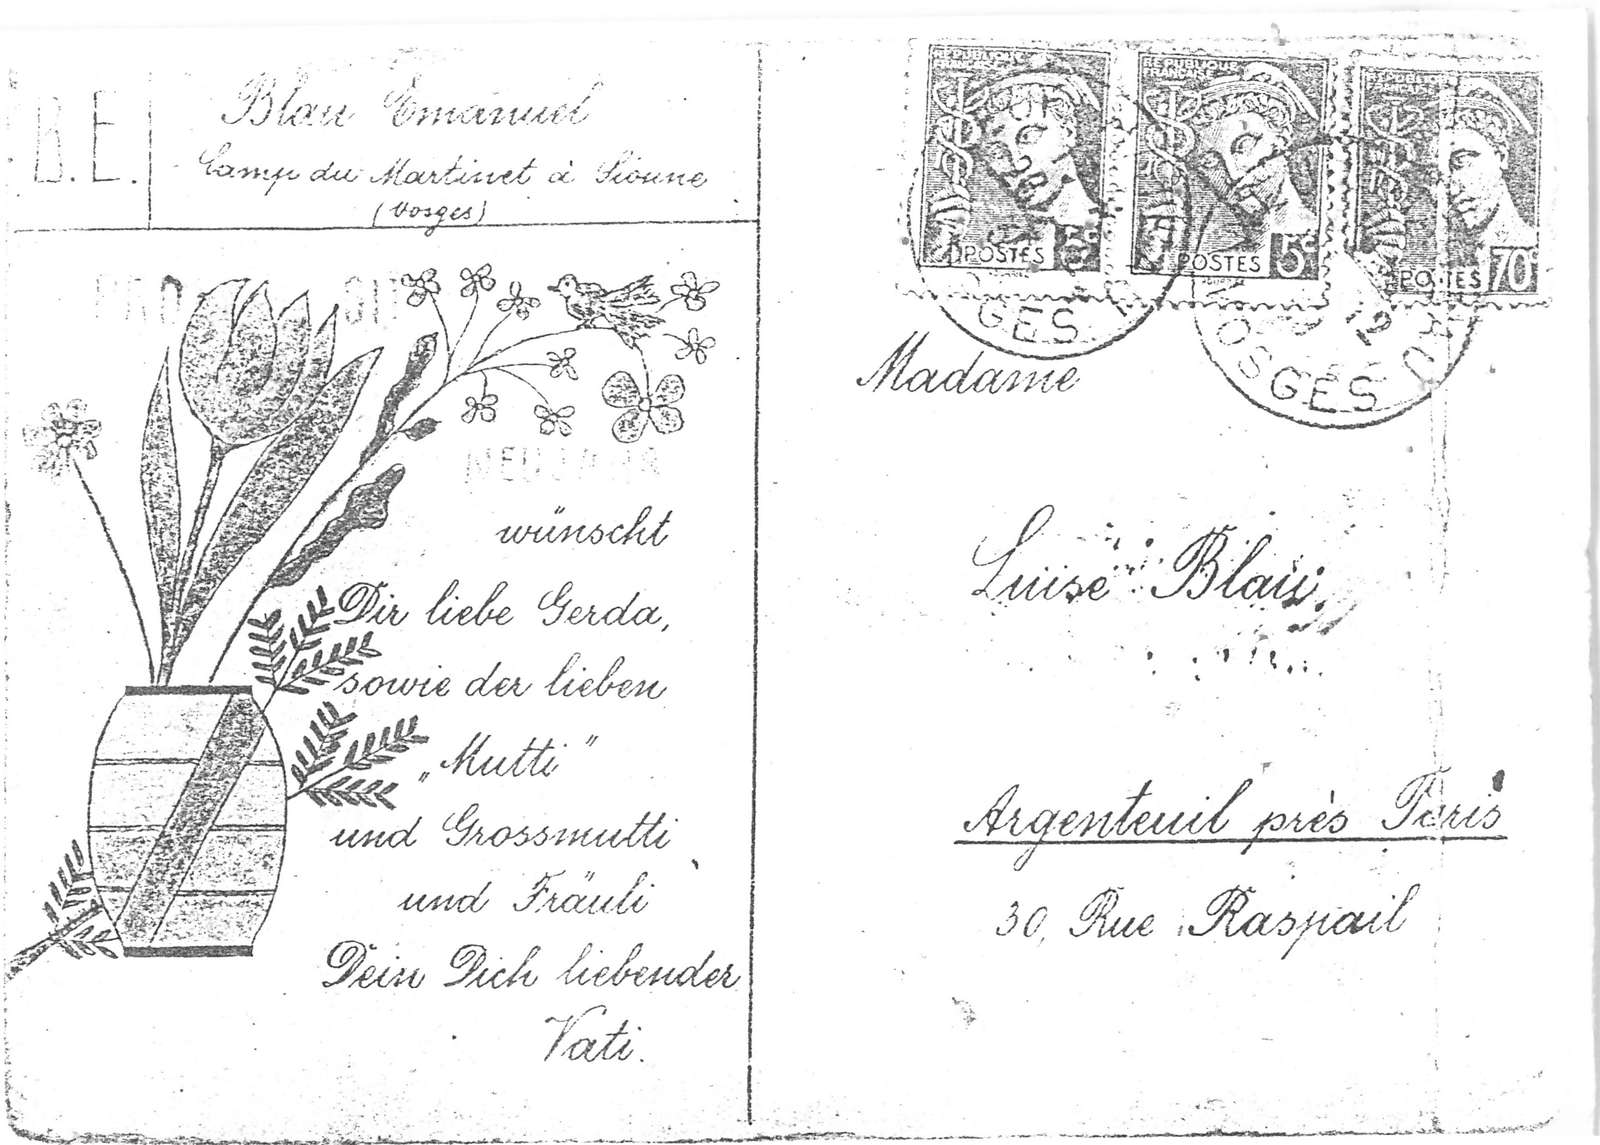 B.E.
Blau Emanuel
Camp du Martinet à Sionne
(Vosges)
NEUJAHR
wünscht
Dir liebe Gerda,
sowie der lieben
„Mutti"
und Grossmutti
und Fräuli
Dein Dich liebender
Vati.
RÉPUBLIQUE
FRANÇAISE
POSTES 5c
RÉPUBLIQUE
FRANÇAISE
POSTES 5c
RÉPUBLIQUE
FRANÇAISE
POSTES 70c
12
OSGES
Madame
Luise Blau
Argenteuil près Paris
30, Rue Raspail